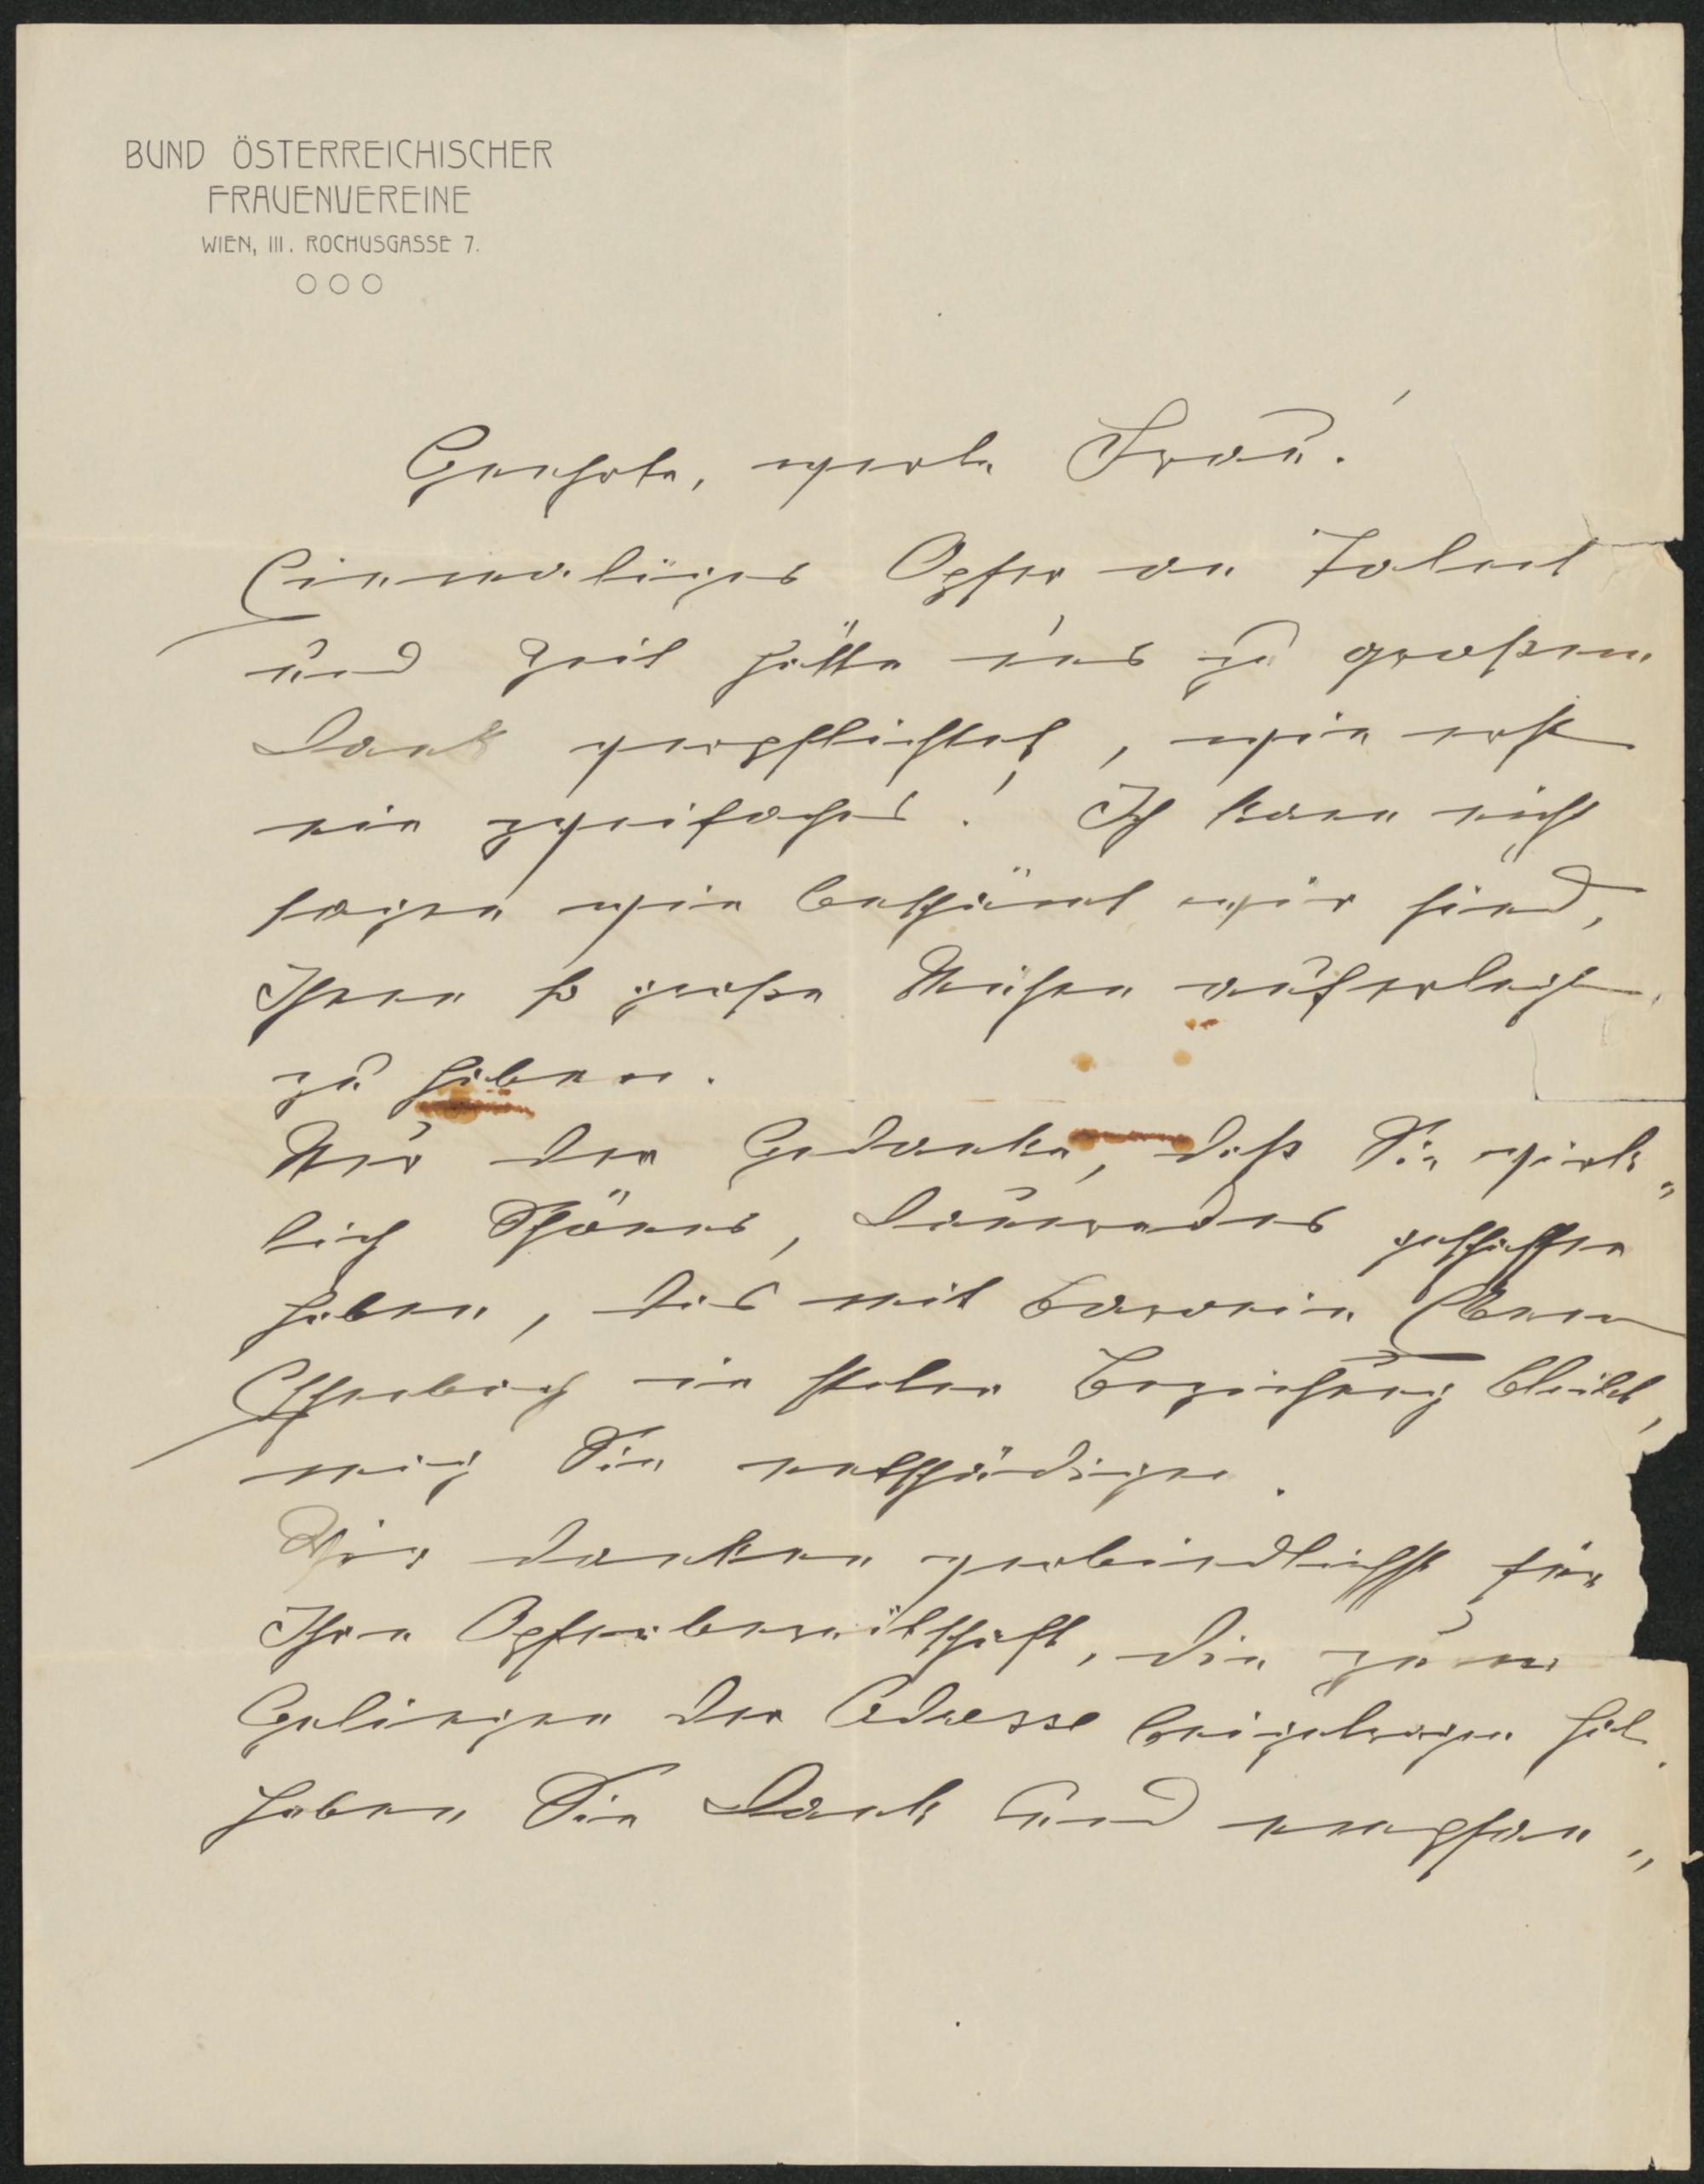 BUND ÖSTERREICHISCHER
FRAUENVEREINE
WIEN, III. ROCHUSGASSE 7.
Geehrte, werte Frau!
Einmaliges Opfer an Talent
und Zeit hätte uns zu großem
Dank verpflichtet, wie erst
ein zweifaches! Ich kann nicht
sagen wie beschämt wir sind,
Ihnen so große Mühen auferlegt
zu haben.
Nur der Gedanke, daß Sie wirk„
lich Schönes, Dauerndes geschaffen
haben, das mit Baronin Ebner
Eschenbach in steter Beziehung bleibt,
mag Sie entschädigen.
Wir danken verbindlichst für
Ihre Opferbereitschaft, die zum
Gelingen der Adresse beigetragen hat.
Haben Sie Dank und empfan„